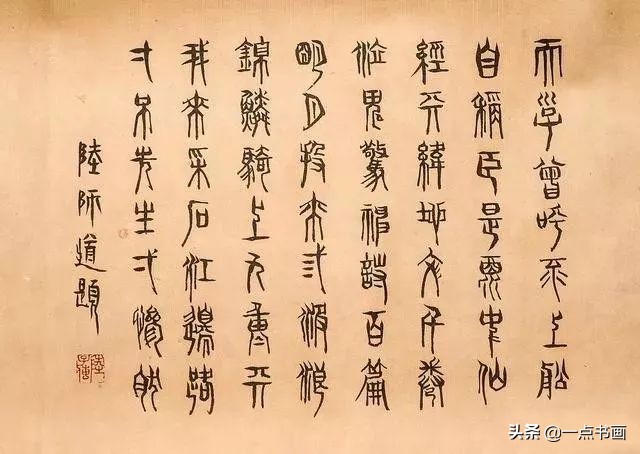 天子曾呼不上船
自稱臣是酒中仙
經天緯地文千卷
泣鬼驚神詩百篇
明月來三浪
錦鱗騎上九重天
我來采石江邊路
一弔先生一慘然
陸師道題
头条 @一点书画